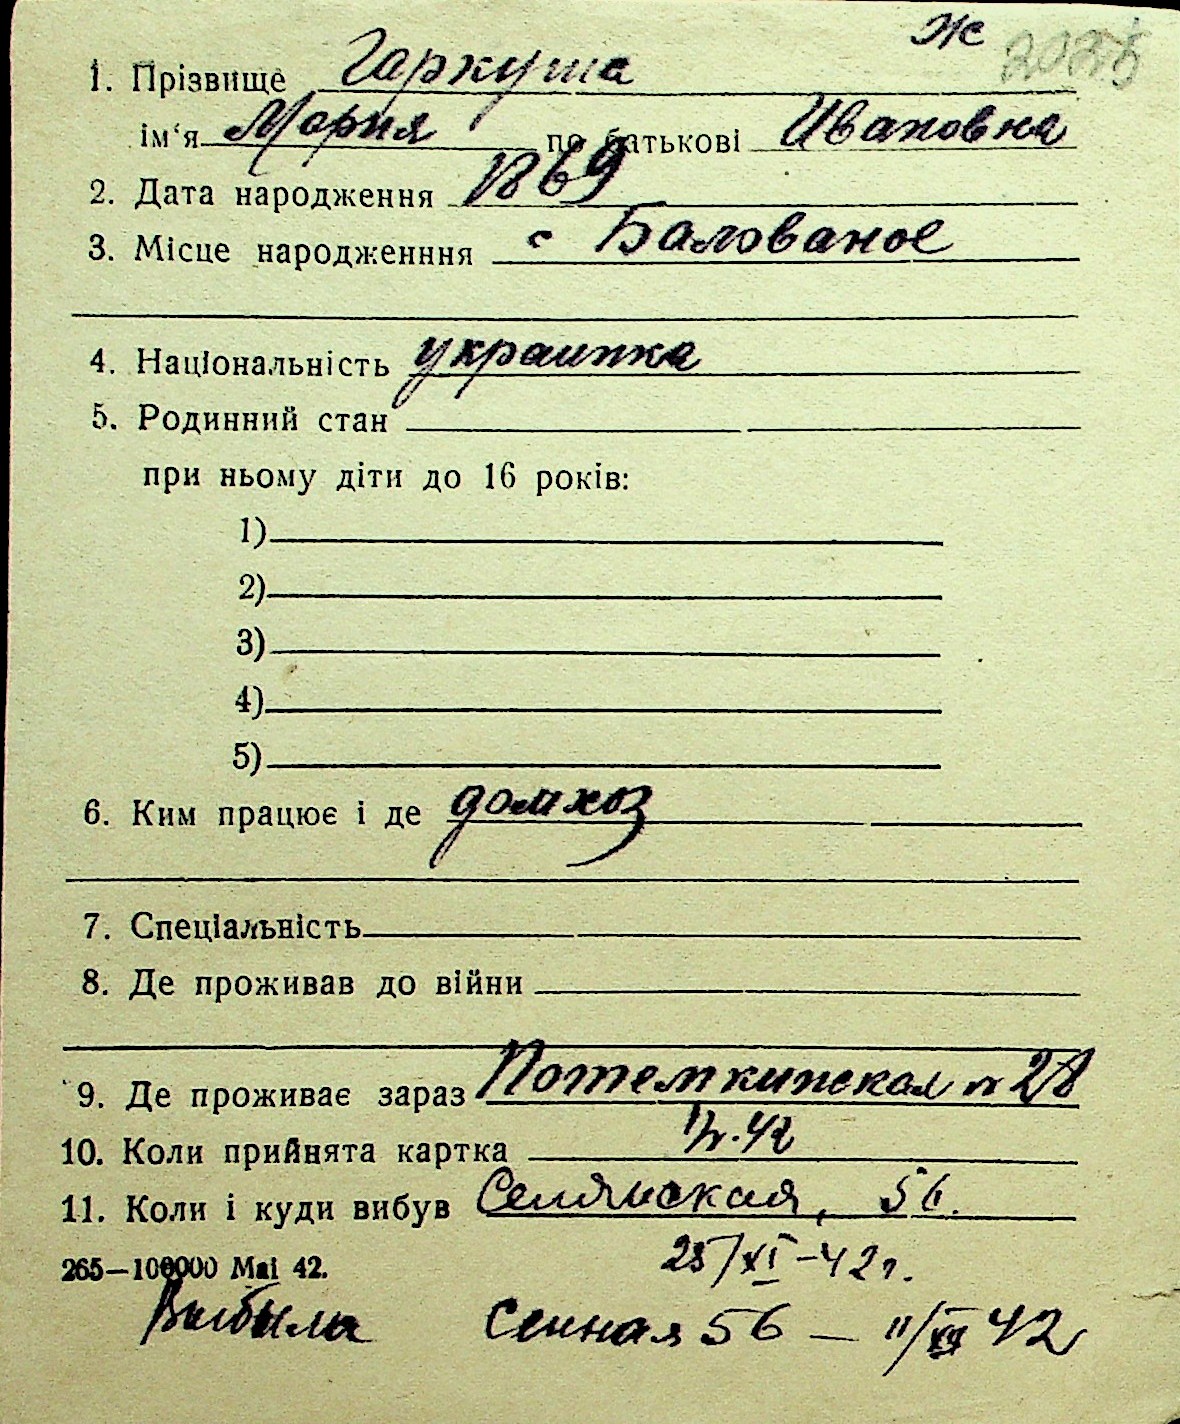 Ж
1. Прізвище Гаркуша
ім'я Мария по батькові Ивановна
2. Дата народження 1869
3. Місце народженння с Балованое
4. Національність украинка
5. Родинний стан
при ньому діти до 16 років:
1)
2)
3)
4)
5)
6. Ким працює і де домхоз
7. Спеціальність
8. Де проживав до війни
9. Де проживає зараз Потемкинская n 28
10. Коли прийнята картка 42
11. Коли і куди вибув Селянская, 56.
265—100000 Маі 42. 25/XI-42г.
Выбыла Сенная 56 — 11/XII 42